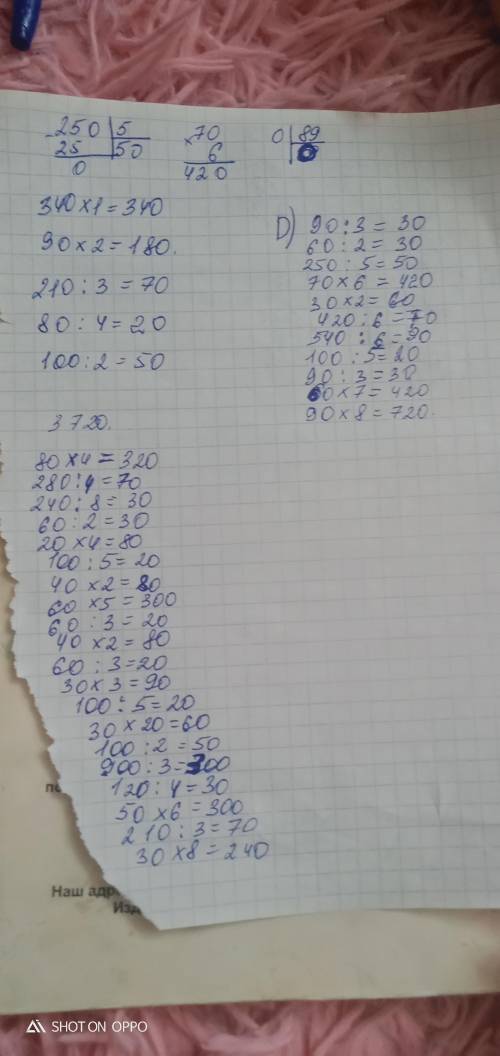 250 | 5
25 | 50
0
×70
6
420
0 | 89
0
340×1=340
90×2=180.
210:3=70
80:4=20
100:2=50
D)
90:3=30
60:2=30
250:5=50
70×6=420
30×2=60
420:6=70
540:6=90
100:5=20
90:3=30
60×7=420
90×8=720.
3720.
80×4=320
280:4=70
240:8=30
60:2=30
20×4=80
100:5=20
40×2=80
60×5=300
60:3=20
40×2=80
60:3=20
30×3=90
100:5=20
30×20=60
100:2=50
900:3=300
120:4=30
50×6=300
210:3=70
30×8=240
Наш адр
Изд
SHOT ON OPPO